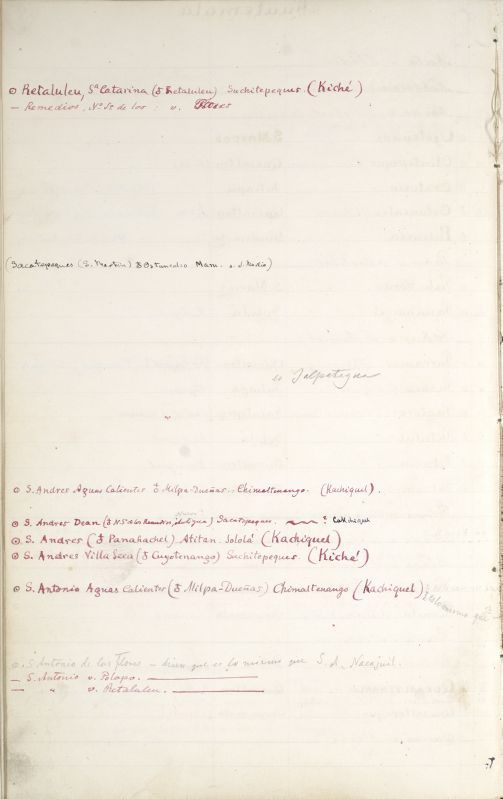 ⊙ Retaluleu, Sª Catarina (♂ Retaluleu) Suchitepeques. (Kiché)
— Remedios, Nª Sª de los : v. Flores
(Sacatepeques (S. Martin) ♂ Ostuncalco Mam.
Jalpatagua
"
⊙ S. Andres Aguas Calientes ♂ Milpa-Dueñas. Chimaltenango. (Kachiquel).
⊙ S. Andres Dean (♂ N.S. de los Remedios, de Sacatepeques. ? Cakchiquel
⊙ S. Andres (♂ Panahachel) Atitan. Sololá (Kachiquel)
⊙ S. Andres Villa Seca (♂ Cuyotenango) Suchitepeques. (Kiché)
⊙ S. Antonio Aguas Calientes (♂ Milpa-Dueñas) Chimaltenango (Kachiquel) lo mismo que
⊙ S Antonio de las Flores — dicen que es lo mismo que S. A. Nacajuil.
— S. Antonio v. Polapo.
— " v. Retaluleu.